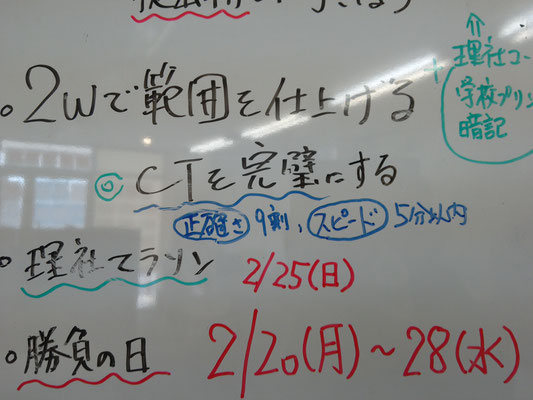 2Wで範囲を仕上げる
◎ CTを完璧にする
正確さ 9割、スピード 5分以内
理社マラソン 2/25(日)
勝負の日 2/20(月)~28(水)
介
理社コー
学校プリン
暗記